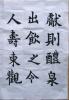 獻則醴泉
出飲之令
人壽東觀